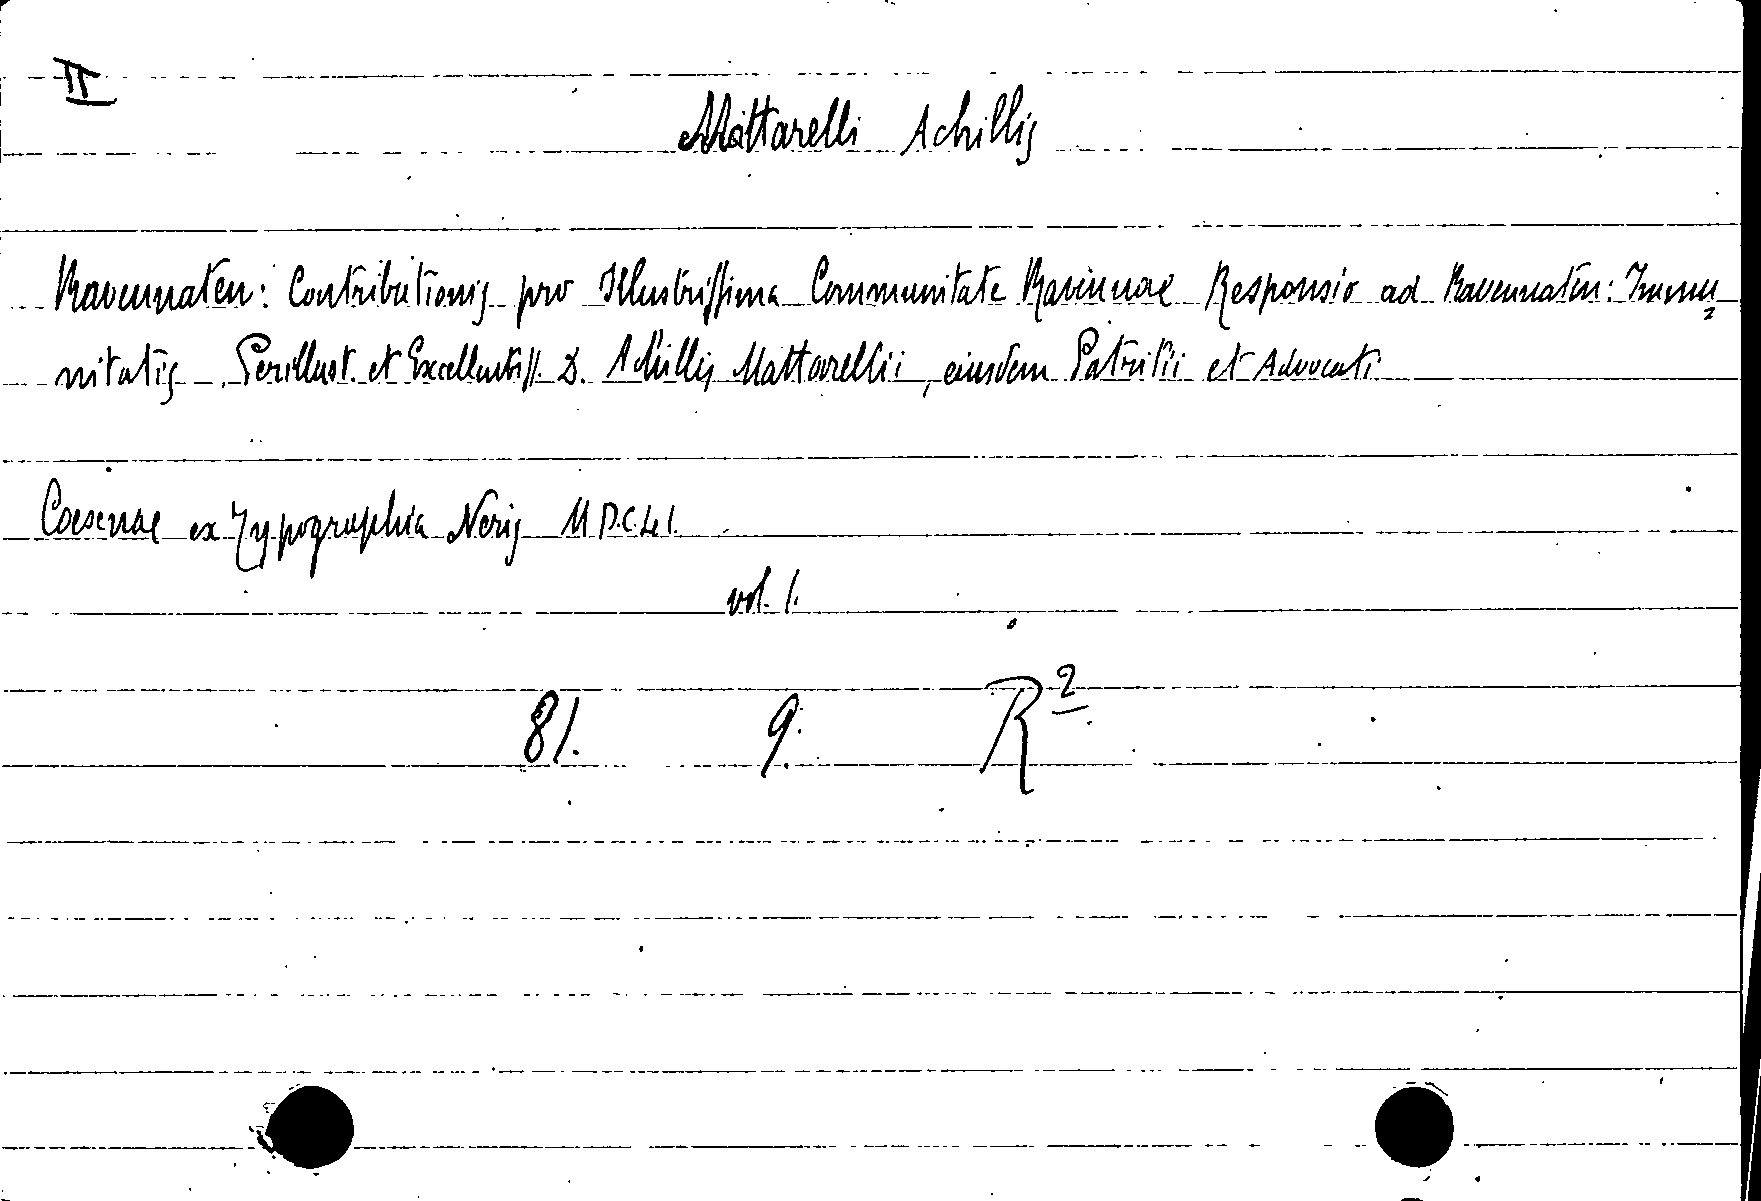 II
Mattarelli Achillis
Ravennaten: Contributionis pro Illustrissima Communitate Ravennae Responsio ad Ravennaten: Immu
nitatis Perillust. et Excellentiss. D. Achillis Mattarellii, eiusdem Patritii et Advocati
Caesenae ex Typographia Neris M D.C.L I.
vol. 1.
81. 9. R²